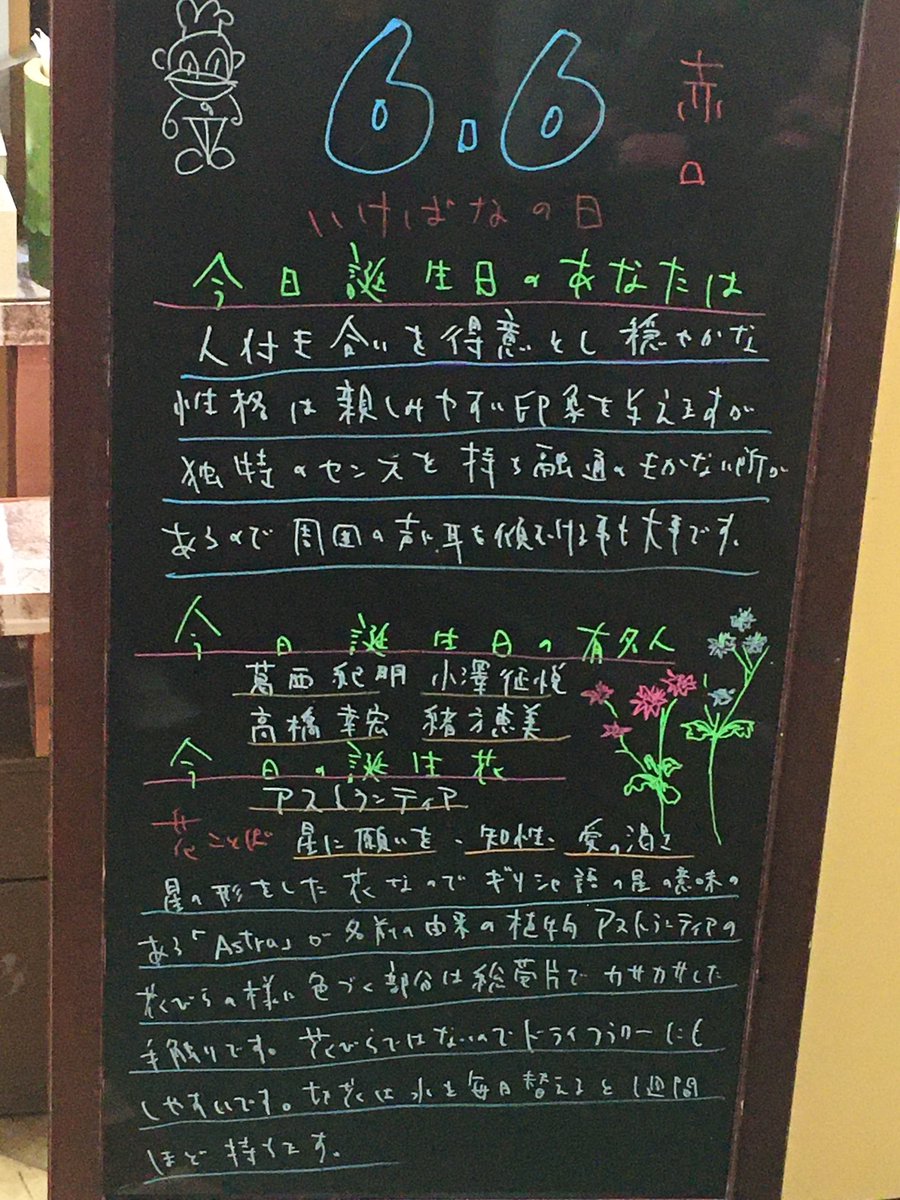 6.6
赤口
いけばなの日
今日誕生日のあなたは
人付き合いを得意とし穏やかな
性格は親しみやすい印象を与えますが
独特のセンスを持ち融通のきかない所が
あるので周囲の声に耳を傾ける事も大事です。
今日誕生日の有名人
葛西紀明 小澤征悦
高橋幸宏 緒方恵美
今日の誕生花
アストランティア
花ことば 星に願いを・知性・愛の渇き
星の形をした花なのでギリシャ語の星の意味の
ある「Astra」が名前の由来の植物 アストランティアの
花びらの様に色づく部分は総苞片でカサカサした
手触りです。花びらではないのでドライフラワーにも
しやすいです。切花は水を毎日替えると1週間
ほど持ちます。